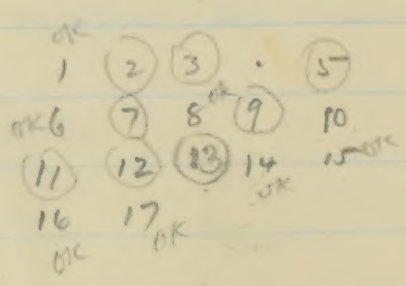 OK
1 2 3 . 5
OK 6 7 8 OK 9 10
11 12 13 14 15 OK
OK
16 17 OK
OK